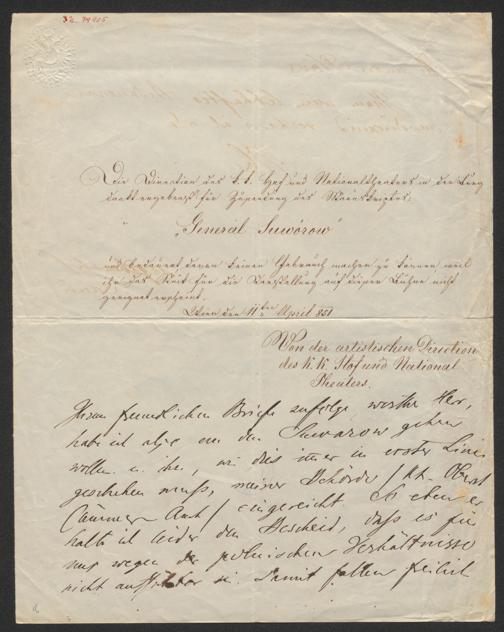 32.79905
Die Direction des k. k. Hof und Nationaltheaters in der Burg
dankt ergebenst für Zusendung des Manuskriptes:
„General Suwórow“
und bedauert davon keinen Gebrauch machen zu können weil
ihr das Stück für die Darstellung auf dieser Bühne nicht
geeignet erscheint.
Wien den 11ten April 851
Von der artistischen Direction
des k. k. Hof und National
Theaters.
freundlichen Briefe zufolge, werther Herr,
habe ich also den Suwarow geben
wollen u. ihn, wie dies immer in erster Linie
geschehen muß, meiner Behörde / kk. Oberst
Cämmer-Amt / eingereicht. So eben er
halte ich leider den Bescheid, daß es für
uns wegen der polnischen Verhältnisse
nicht aufführbar sei. Damit fallen freilich